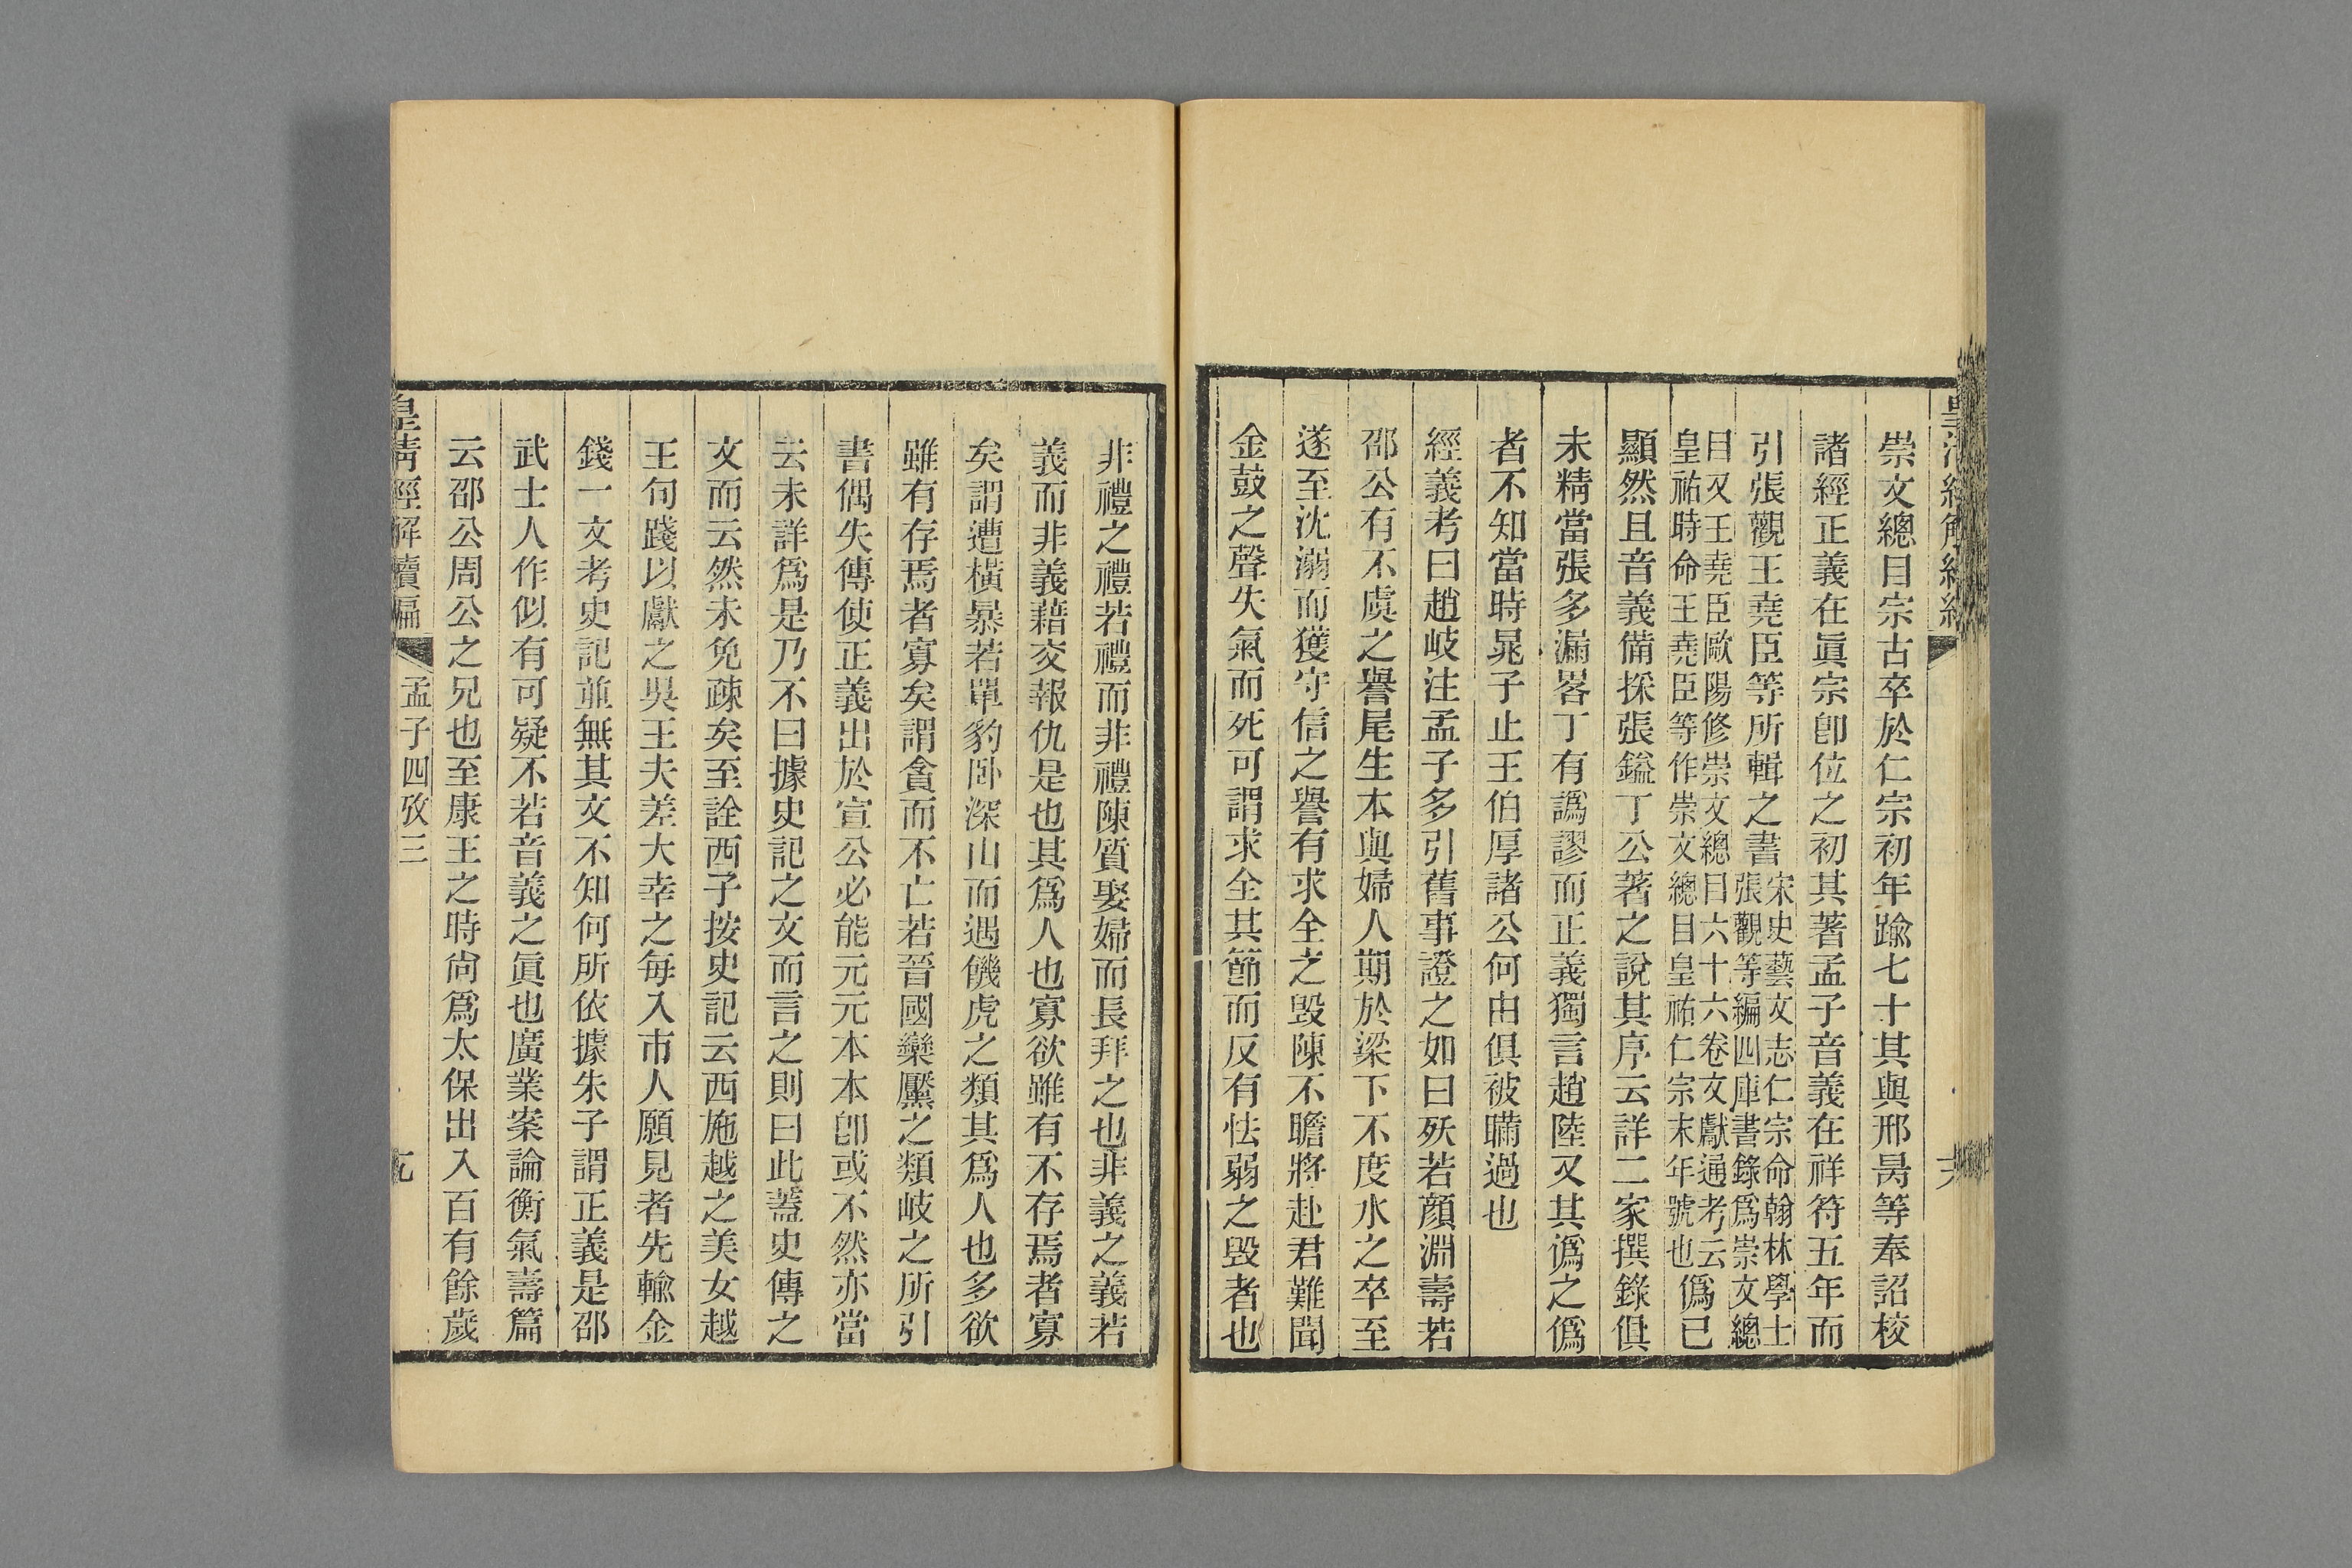 崇文總目宗古卒於仁宗初年踰七十其與邢昺等奉詔校
諸經正義在眞宗卽位之初其著孟子音義在祥符五年而
引張觀王堯臣等所輯之書宋史藝文志仁宗命翰林學士
張觀等編四庫書錄爲崇文總
目又王堯臣歐陽修崇文總目六十六卷文獻通考云
皇祐時命王堯臣等作崇文總目皇祐仁宗末年號也僞已
顯然且音義備採張鎰丁公著之說其序云詳二家撰錄俱
未精當張多漏畧丁有譌謬而正義獨言趙陸又其僞之僞
者不知當時晁子止王伯厚諸公何由俱被瞞過也
經義考曰趙岐注孟子多引舊事證之如曰殀若顏淵壽若
邵公有不虞之譽尾生本與婦人期於梁下不度水之卒至
遂至沈溺而獲守信之譽有求全之毁陳不瞻將赴君難聞
金鼓之聲失氣而死可謂求全其節而反有怯弱之毁者也
非禮之禮若禮而非禮陳質娶婦而長拜之也非義之義若
義而非義藉交報仇是也其爲人也寡欲雖有不存焉者寡
矣謂遭橫暴若單豹卧深山而遇饑虎之類其爲人也多欲
雖有存焉者寡矣謂貪而不亡若晉國欒黶之類岐之所引
書偶失傳使正義出於宣公必能元元本本卽或不然亦當
云未詳爲是乃不曰據史記之文而言之則曰此蓋史傳之
文而云然未免疎矣至詮西子按史記云西施越之美女越
王句踐以獻之吳王夫差大幸之每入市人願見者先輸金
錢一文考史記並無其文不知何所依據朱子謂正義是邵
武士人作似有可疑不若音義之眞也廣業案論衡氣壽篇
云邵公周公之兄也至康王之時尙爲太保出入百有餘歲
皇淸經解續編
孟子四攷三